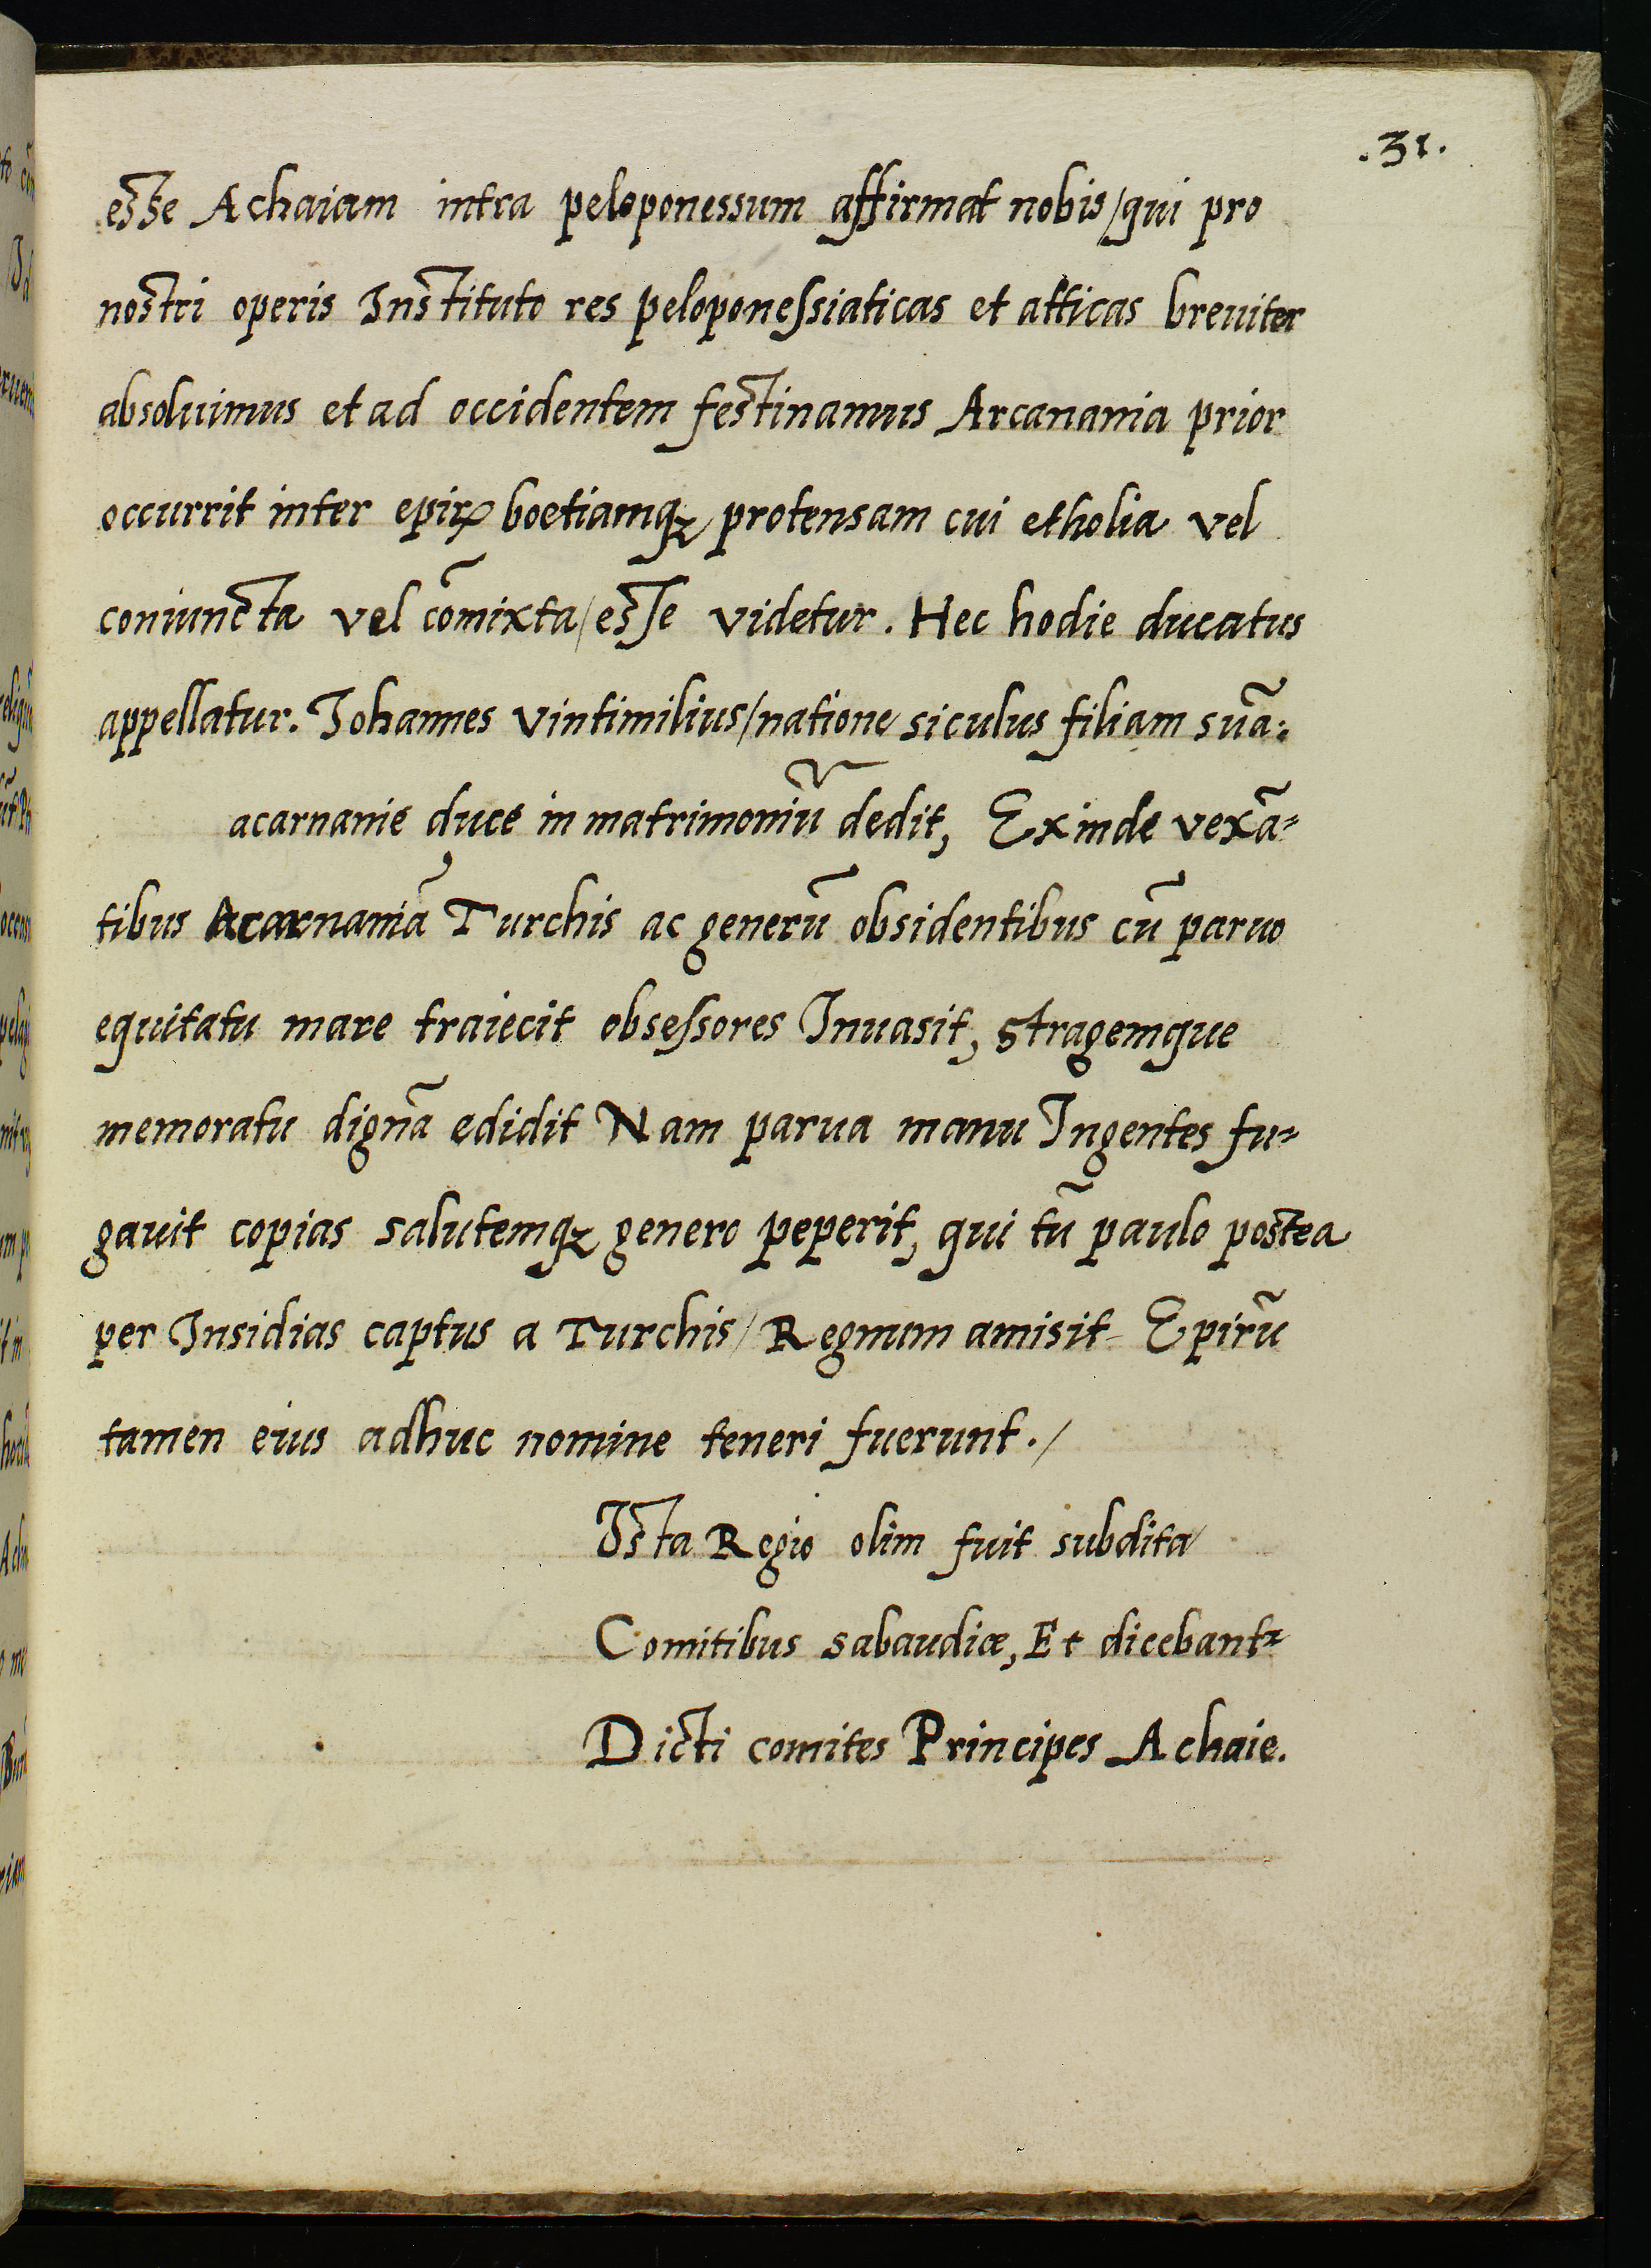 .31.
esse Achaiam intra peloponessum affirmat nobis/qui pro
nostri operis Instituto res peloponessiaticas et atticas breuiter
absoluimus et ad occidentem festinamus Arcanania prior
occurrit inter epirꝝ boetiamqꝫ protensam cui etholia vel
coniuncta vel cōmixta/esse videtur. Hec hodie ducatus
appellatur. Johannes vintimilius/natione siculus filiam suā:
acarnanie duce in matrimoniū dedit, Exinde vexā=
tibus Acarnaniā Turchis ac generū obsidentibus cū paruo
equitatu mare traiecit obsessores Inuasit, stragemque
memoratu dignā edidit Nam parua manu Ingentes fu=
gauit copias salutemqꝫ genero peperit, qui tū paulo postea
per Insidias captus a Turchis/Regnum amisit Epirū
tamen eius adhuc nomine teneri fuerunt./
Ista Regio olim fuit subdita
Comitibus sabaudiæ, Et dicebantᷣ
Dicti comites Principes Achaie.